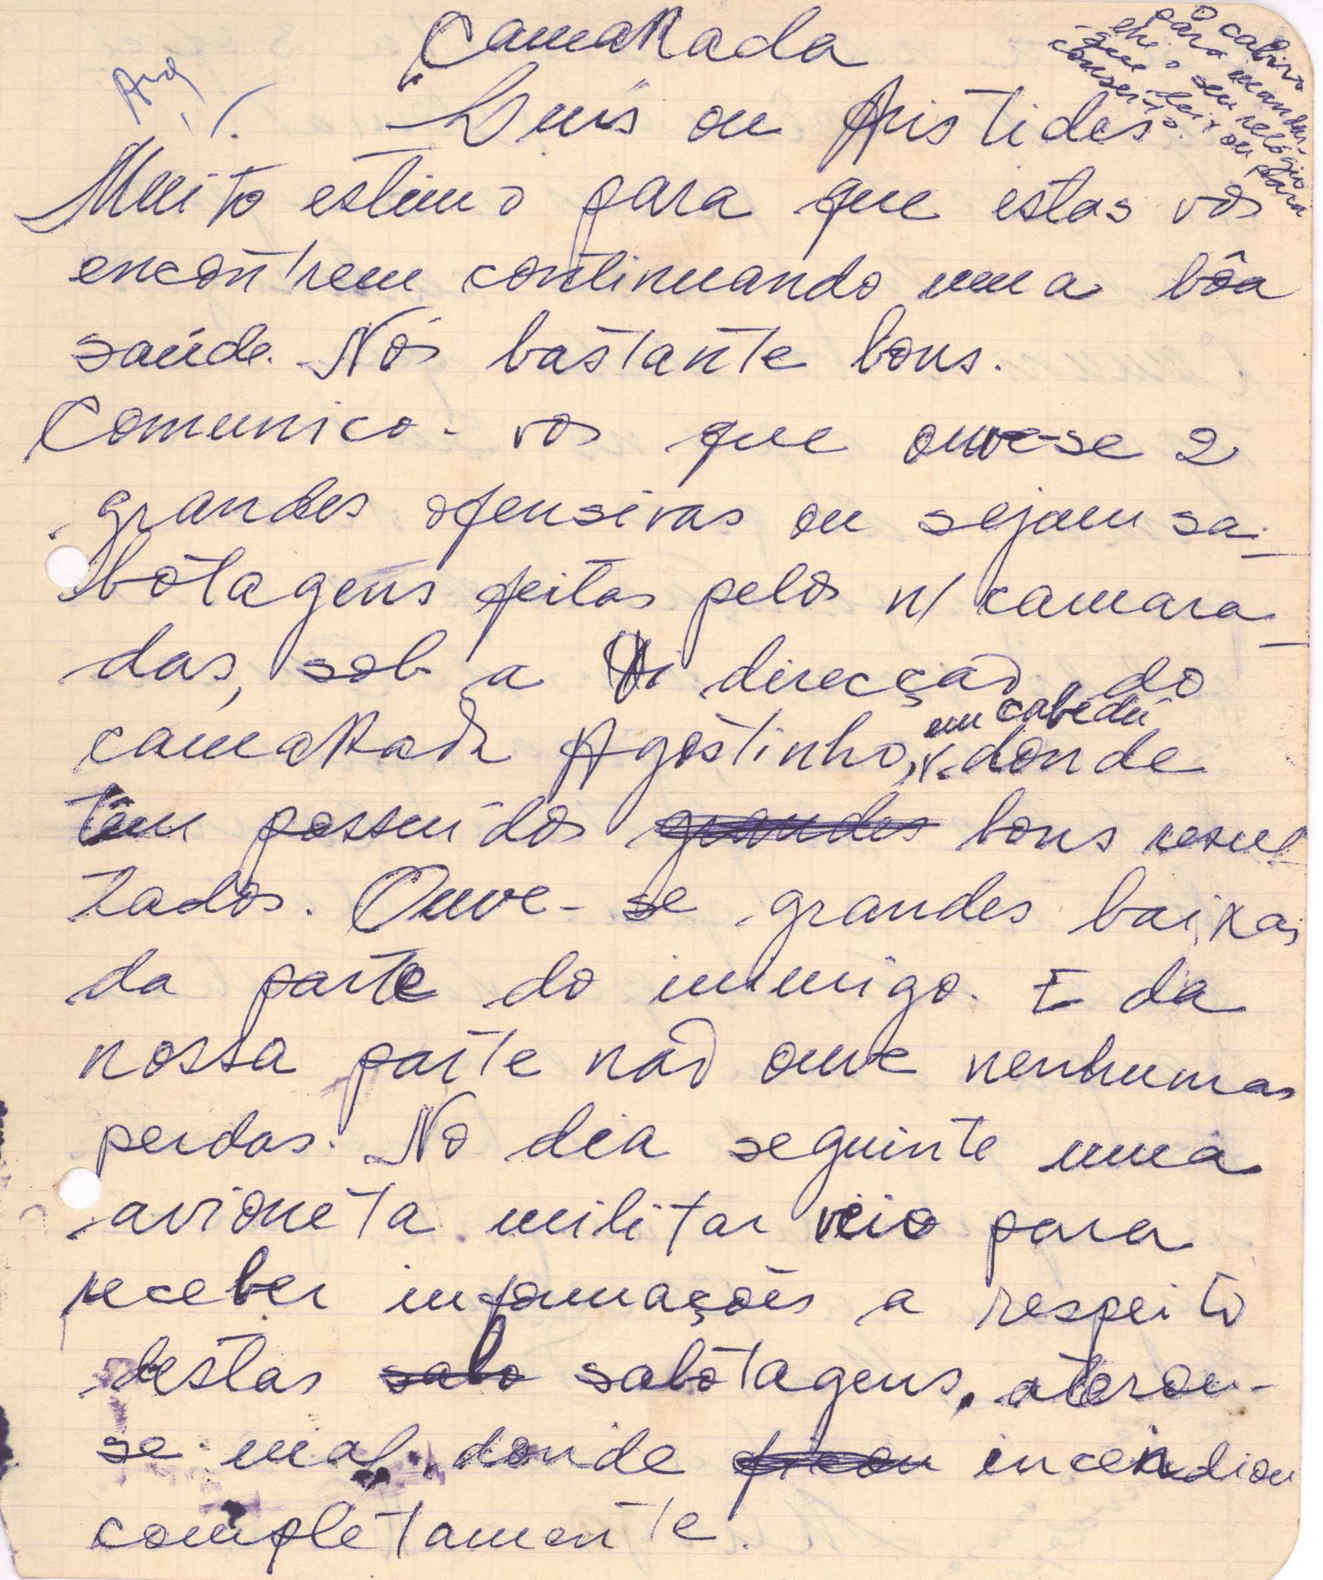 Camarada
Luís ou Aristides
O cabiro
para mandar-
lhe o seu relógio
que deixou para
conserto.
Arq
Muito estimo para que estas vos
encontrem continuando uma bôa
saúde. Nós bastante bons.
Comunico-vos que ouve-se 2
grandes ofensivas ou sejam sa-
botagens feitas pelos n/ camara-
das, sob a direcção do
camarada Agostinho, em Cabedú donde
têm possuidos grandes bons resul-
tados. Ouve-se grandes baixas
da parte do inimigo. E da
nossa parte não ouve nenhumas
perdas. No dia seguinte uma
avioneta militar veio para
receber informações a respeito
destas sabo sabotagens, aterou-
se mal, donde ficou incendiou
completamente.